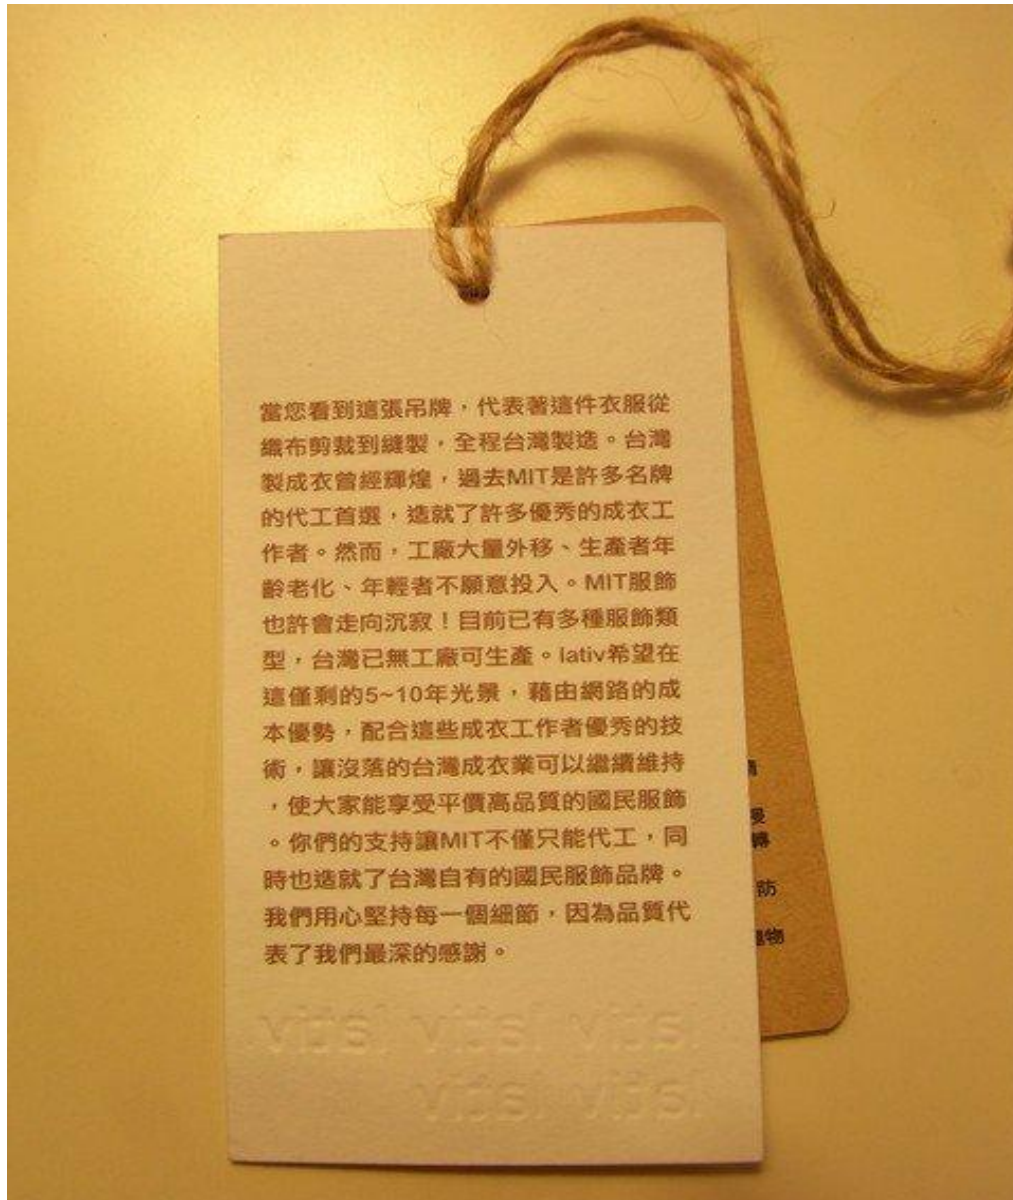 當您看到這張吊牌，代表著這件衣服從
織布剪裁到縫製，全程台灣製造。台灣
製成衣曾經輝煌，過去MIT是許多名牌
的代工首選，造就了許多優秀的成衣工
作者。然而，工廠大量外移、生產者年
齡老化、年輕者不願意投入。MIT服飾
也許會走向沉寂！目前已有多種服飾類
型，台灣已無工廠可生產。lativ希望在
這僅剩的5~10年光景，藉由網路的成
本優勢，配合這些成衣工作者優秀的技
術，讓沒落的台灣成衣業可以繼續維持
，使大家能享受平價高品質的國民服飾
。你們的支持讓MIT不僅只能代工，同
時也造就了台灣自有的國民服飾品牌。
我們用心堅持每一個細節，因為品質代
表了我們最深的感謝。
lativ lativ lativ
lativ lativ
轉
防
物